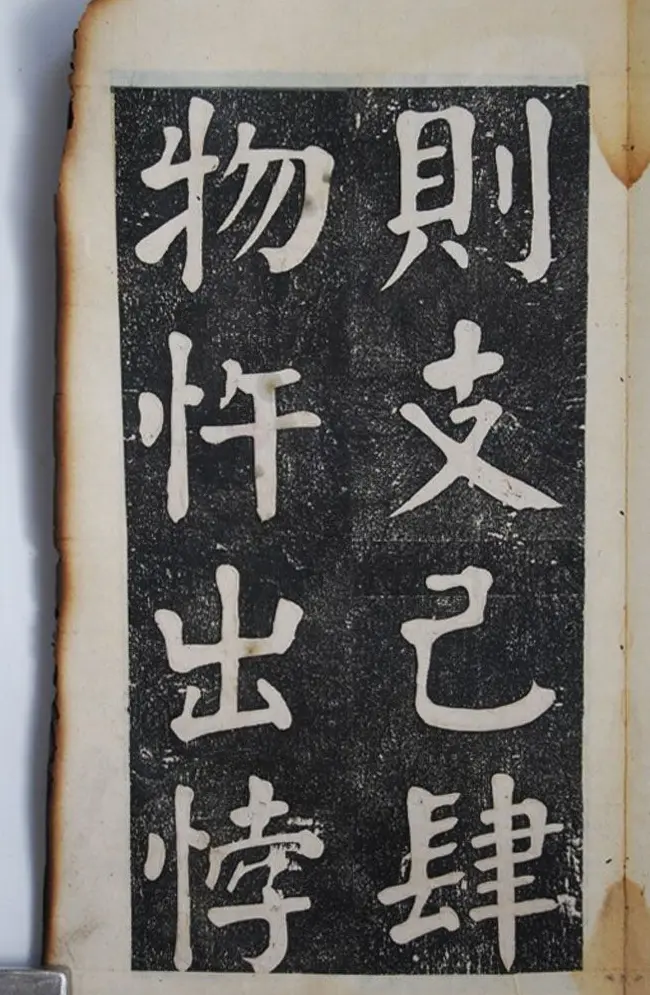 則支己肆
物忤出悖